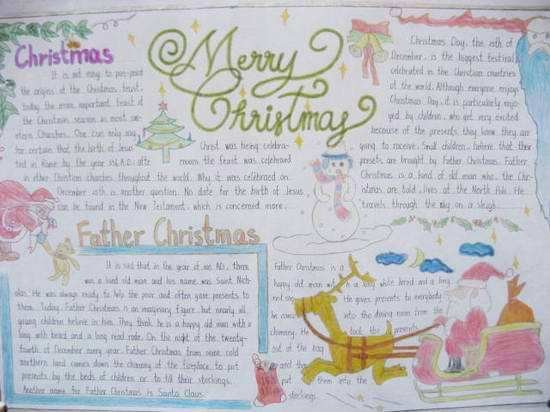 Christmas
It is not easy to pin-point
the origins of the Christmas feast,
today the most important feast of
the Christmas season in most wes-
tern Churches. One can only say
for certain that the birth of Jesus Christ was being celebra-
ted in Rome by the year A.D. afte moon the feast was celebrated
in other Christian churches throughout the world. Why it was celebrated on
December 25th is another question. No date for the birth of Jesus
can be found in the New Testament, which is concerned more
Merry
Christmas
Christmas Day, the 25th of
December, is the biggest festival
celebrated in the Christian countries
of the world. Although everyone enjoys
Christmas Day, it is particularly enjo-
yed by children, who get very excited
because of the presents they know they are
going to receive. Small children believe that their
presents are brought by Father Christmas. Father
Christmas is a kind of old man who, the Chi-
are told, lives at the North Pole. He
travels through the sky on a sleigh
Father Christmas
It is said that in the year of AD, there
was a kind old man and his name was Saint Nich-
olas. He was always ready to help the poor and often gave presents to
them. Today, Father Christmas is an imaginary figure, but nearly all
young children believe in him. They think he is a happy old man with a
long with beard and a long read robe. On the night of the twenty-
fourth of December every year, Father Christmas from some cold
northern land comes down the chimney of the fireplace to put
presents by the beds of children or to fill their stockings.
Another name for Father Christmas is Santa Claus.
Father Christmas is a
happy old man in a long white beard and a long
He gives presents to everybody
he comes into the dining room from the
chimney. He took the presents
out of the bag
and
put them into the
stockings